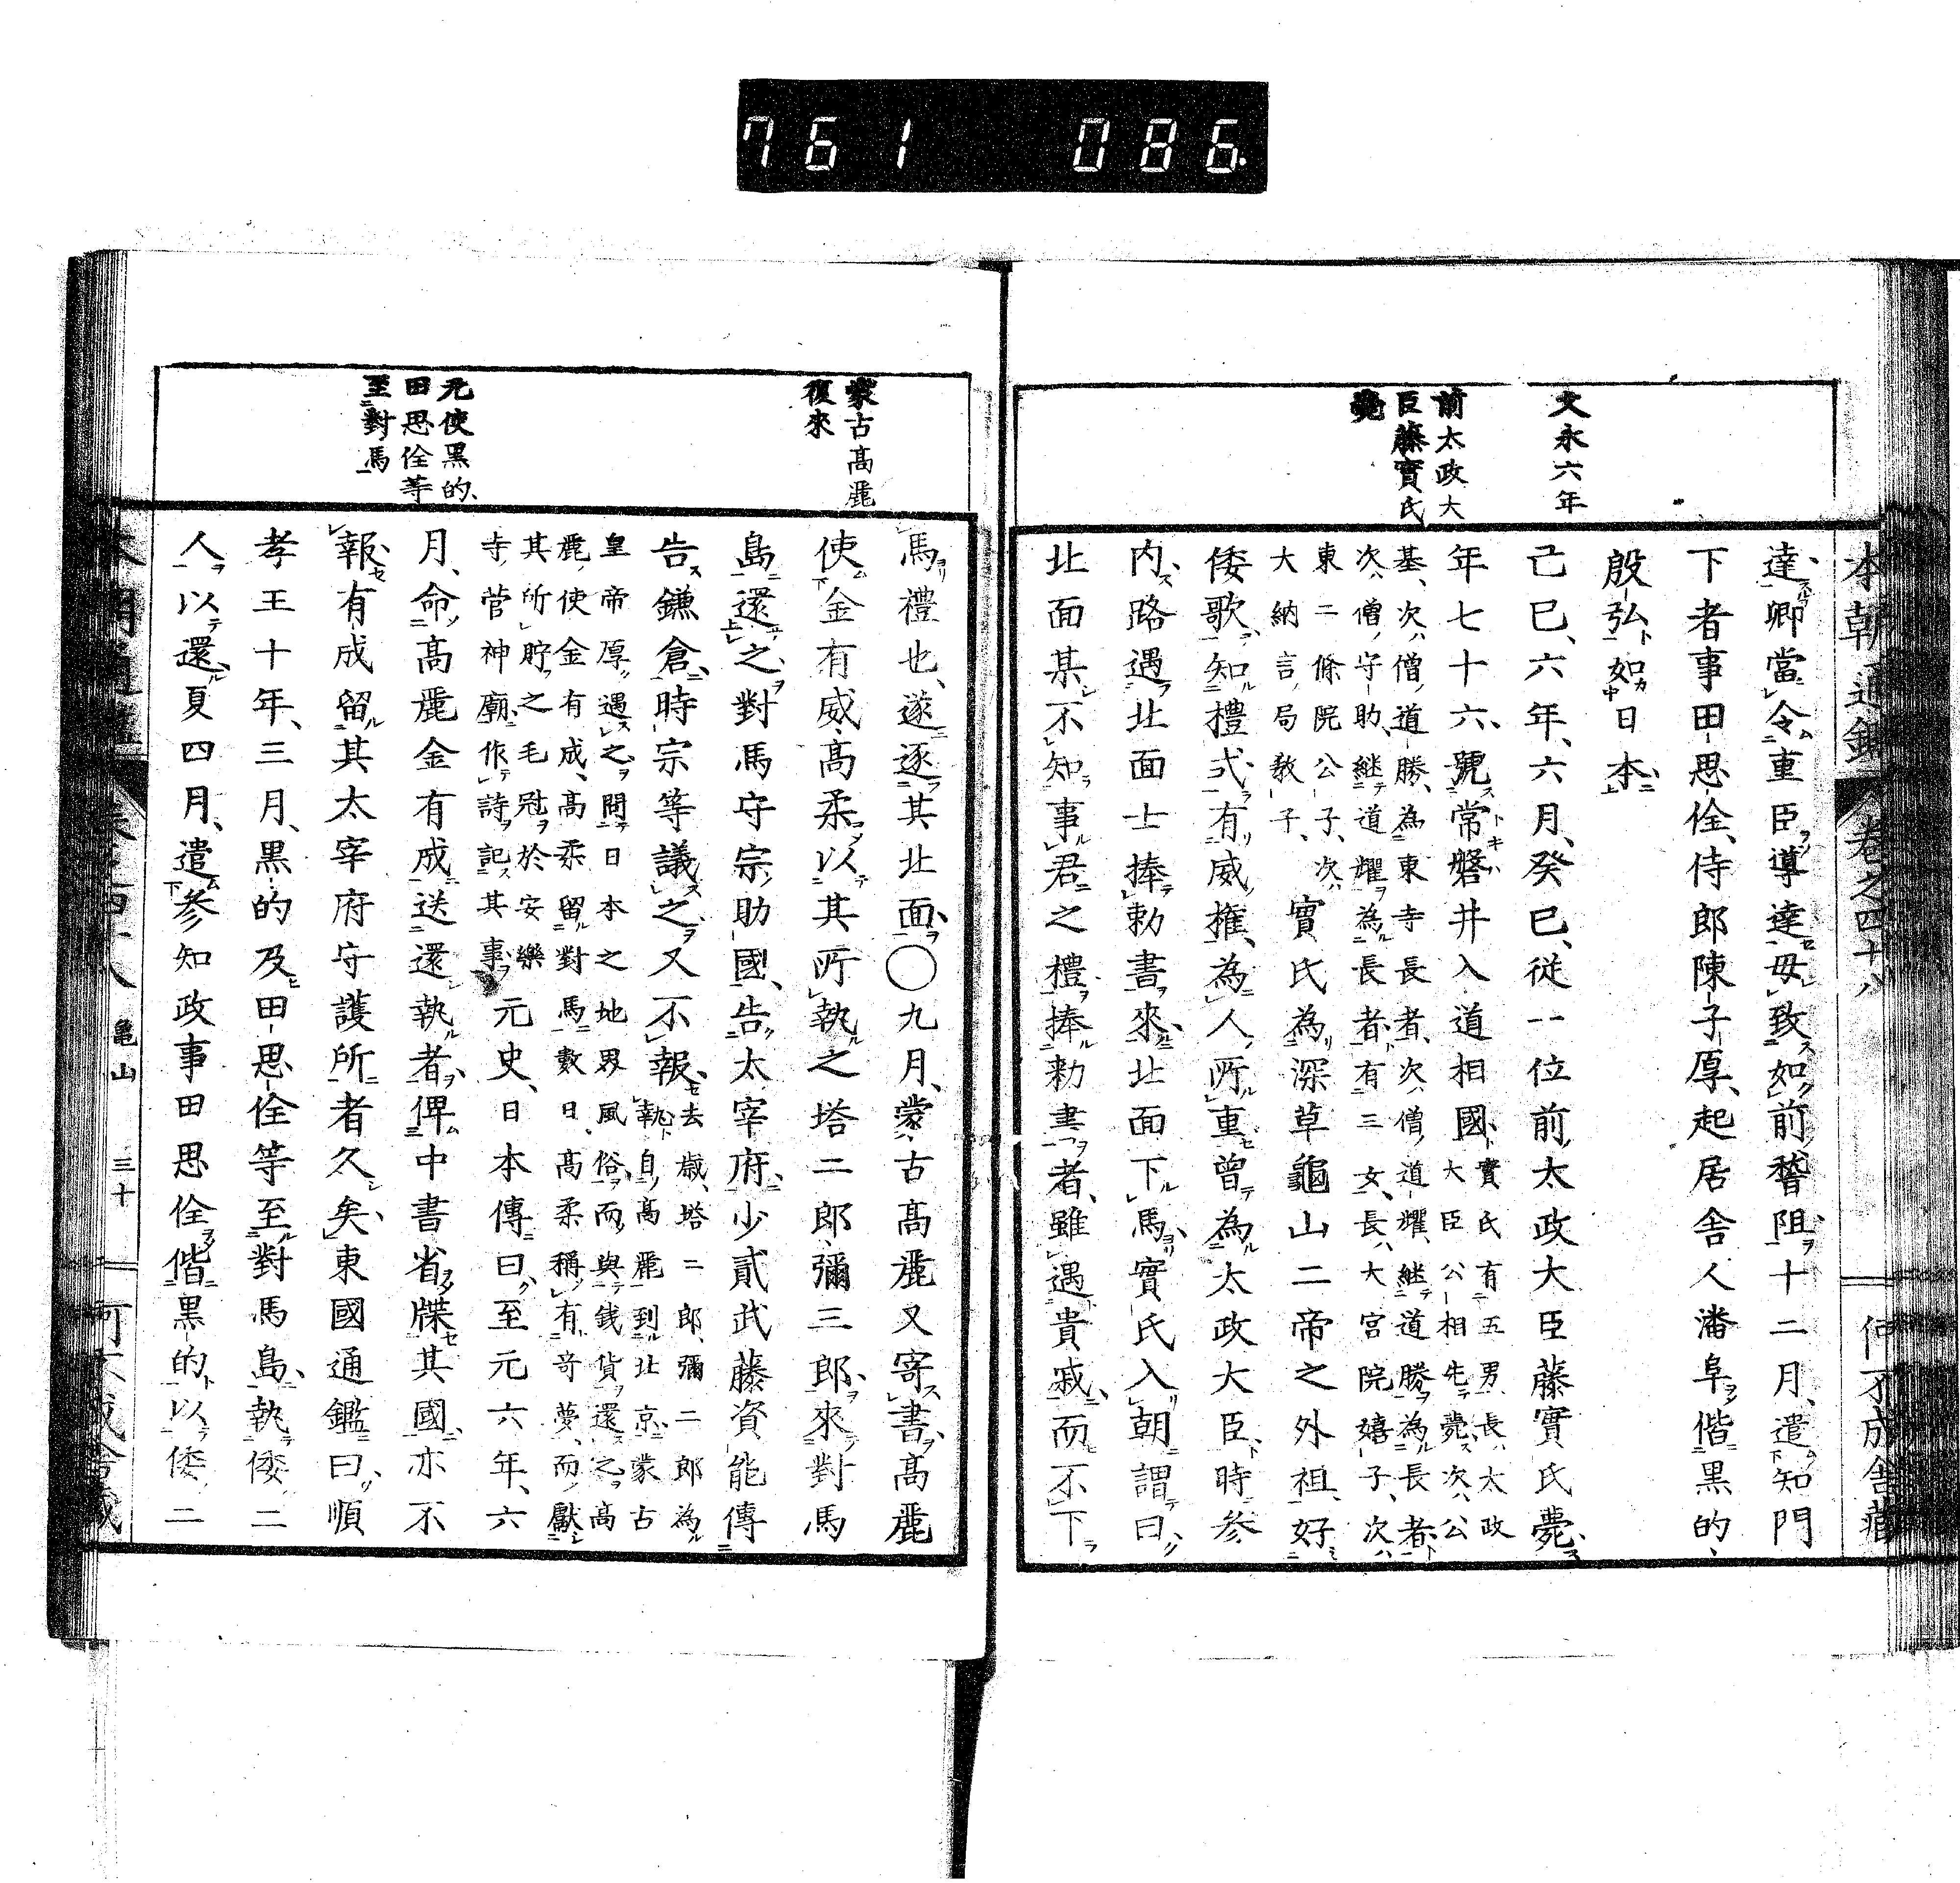 761 086
本朝通鑑 卷之四十八
文永六年
前太政大
臣藤實氏
薨
達卿當令重臣導達毋致如前稽阻十二月遣知門
下者事田思佺侍郎陳子厚起居舍人潘阜偕黒的
殷弘如日本
己巳六年六月癸巳從一位前太政大臣藤實氏薨
年七十六號常磐井入道相國實氏有五男長ハ太政
大臣公相先薨次ハ公
基次ハ僧道勝為東寺長者次ハ僧道耀継道勝為長者
次ハ僧守助継道耀為長者有三女長ハ大宮院嬉子次ハ
東二條院公子次ハ
大納言局敎子
實氏為深草龜山二帝之外祖好
倭歌知禮式有威權為人所重曾為太政大臣時參
内路遇北面士捧勅書來北面下馬實氏入朝謂曰
北面某不知事君之禮捧勅書者雖遇貴戚而不下
蒙古高麗
復來
元使黒的
田思佺等
至對馬
馬禮也遂逐其北面〇九月蒙古高麗又寄書高麗
使金有威高柔以其所執之塔二郎彌三郎來對馬
島還之對馬守宗助國告太宰府少貳武藤資能傳
告鎌倉時宗等議之又不報去歳塔二郎彌二郎為
執自高麗到北京蒙古
皇帝厚遇之問日本之地界風俗而與銭貨還之高
麗使金有成高柔留對馬數日高柔稱有奇夢而獻
其所貯之毛冠於安樂
寺菅神廟作詩記其事
元史日本傳曰至元六年六
月命高麗金有成送還執者俾中書省牒其國亦不
報有成留其太宰府守護所者久矣東國通鑑曰順
孝王十年三月黒的及田思佺等至對馬島執倭二
人以還夏四月遣參知政事田思佺偕黒的以倭二
亀山 三十